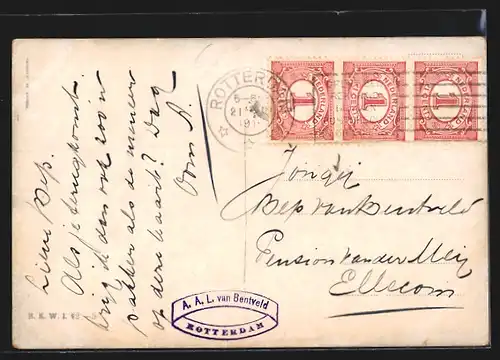 Lieve Bep.
Als je terugkomt
krijg je dan ook zoo'n
pakken als de meneer
op deze kaart? Dag
Oom A.
ROTTERDAM
5-6
21
191
NEDERLAND
1
CENT
NEDERLAND
1
CENT
NEDERLAND
1
CENT
Jongej
Bep van Bentveld
Pension van der Meij
Ellecom
A. A. L. van Bentveld
ROTTERDAM
B. K. W. I.